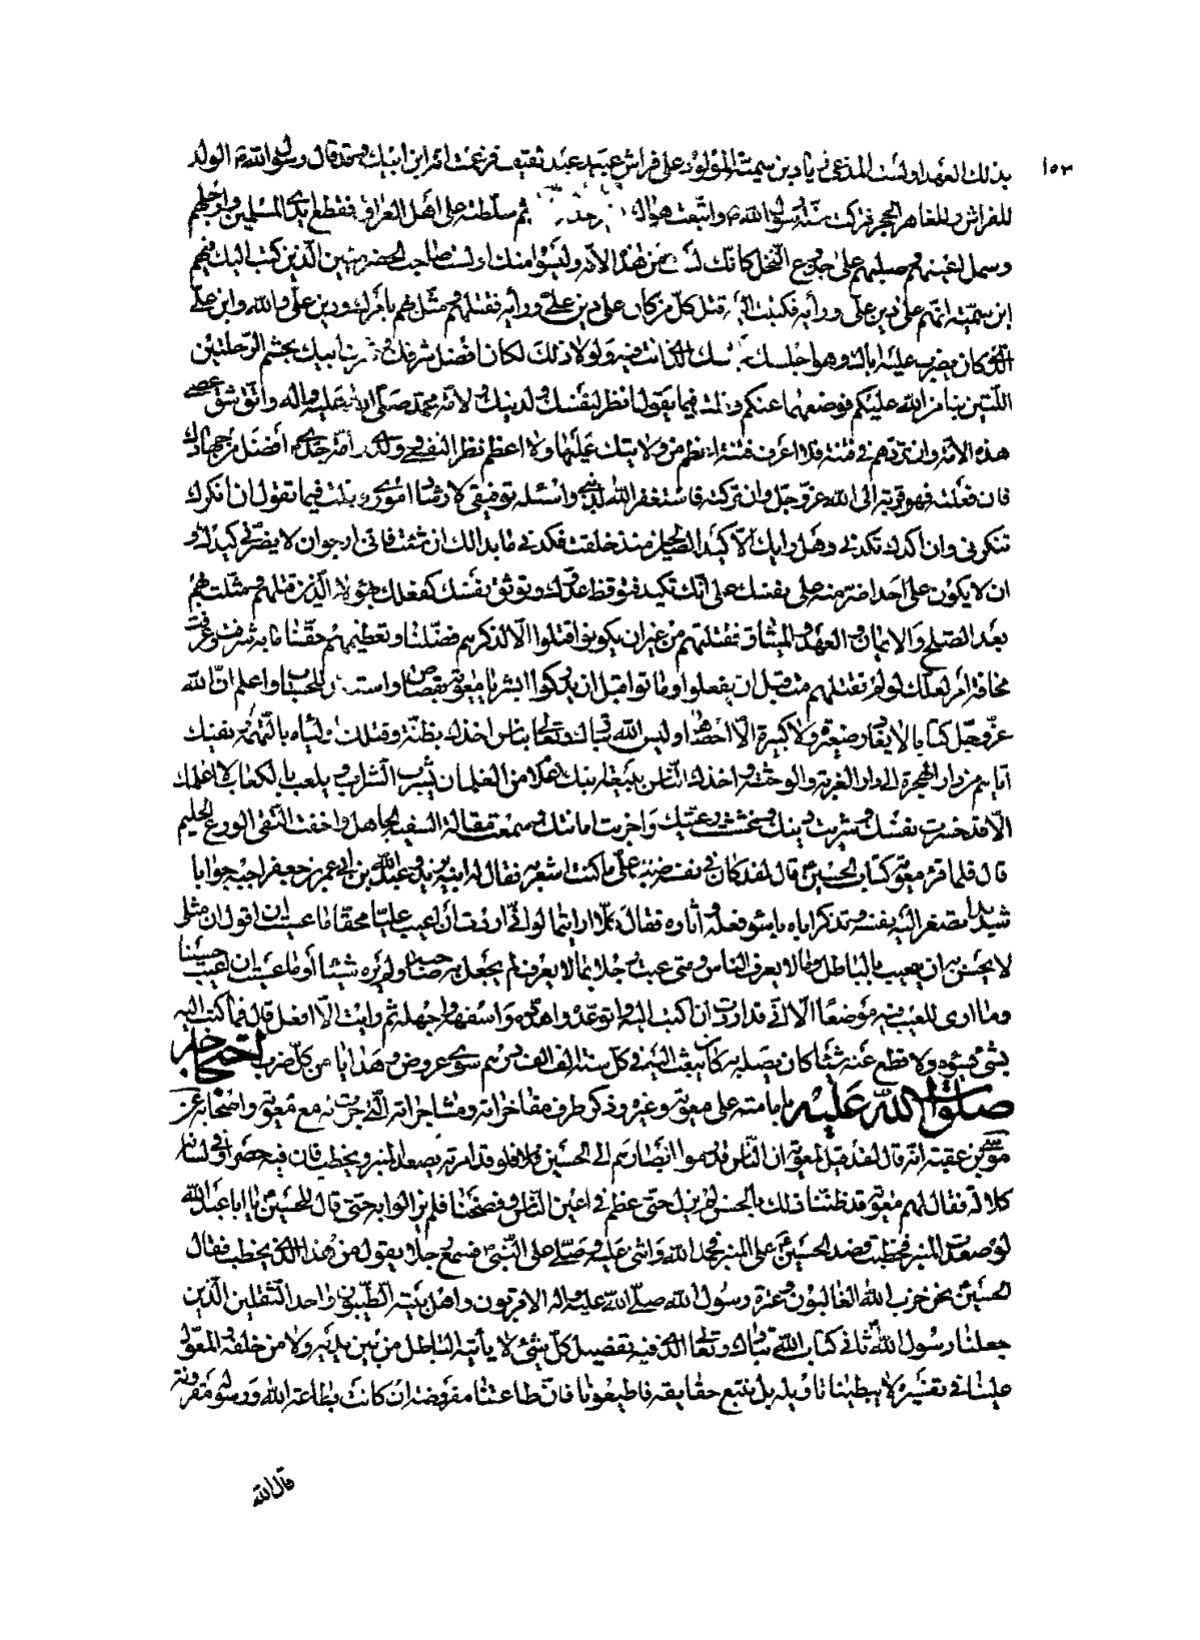 ١٥٣
بذلك العهد اولست المدعى زياد بن سمية المولود على فراش عبيد عبد ثقيف فزعمت انه ابن ابيك وقد قال رسول الله ص الولد
للفراش وللعاهر الحجر فتركت سنة رسول الله ص واتبعت هواك ثم سلطته على اهل العراق فقطع ايدى المسلمين وارجلهم
وسمل اعينهم وصلبهم على جذوع النخل كانك لست من هذه الامة وليسوا منك اولست صاحب الحضرميين الذين كتب اليك فيهم
ابن سمية انهم على دين على ورأيه فكتبت اليه اقتل كل من كان على دين على ع ورأيه فقتلهم ومثل بهم بامرك ودين على والله وابن على
الذى كان يضرب عليه اباك وهو اجلسك مجلسك الذى انت فيه ولولا ذلك لكان افضل شرفك وشرف ابيك تجشم الرحلتين
اللتين بنا من الله عليكم فوضعهما عنكم وقلت فيما تقول انظر لنفسك ولدينك ولامة محمد صلى الله عليه واله واتق شق عصى
هذه الامة وان تردهم فى فتنة فلا اعرف فتنة اعظم من ولايتك عليها ولا اعظم نظر النفسى وولدى وامة جدى افضل من جهادك
فان فعلته فهو قربة الى الله عز وجل وان تركته فاستغفر الله لذنبى واسئله توفيقى لارشاد امورى وقلت فيما تقول ان انكرك
تنكرنى وان اكدك تكدنى وهل رأيك الا كيد الصالحين منذ خلقت فكدنى ما بدا لك ان شئت فانى ارجو ان لا يضرنى كيدك و
ان لا يكون على احد اضر منه على نفسك على انك تكيد فتوقظ عدوك وتوبق نفسك كفعلك بهؤلاء الذين قتلتهم ومثلت بهم
بعد الصلح والايمان والعهد والميثاق فقتلتهم من غير ان يكونوا قتلوا الا لذكرهم فضلنا وتعظيمهم حقنا ما به شرفت وعرفت
مخافة امر لعلك لو لم تقتلهم مت قبل ان يفعلوا او ماتوا قبل ان يدركوا ابشر يا معوية بقصاص واستعد للحساب واعلم ان الله
عز وجل كتابا لا يغادر صغيرة ولا كبيرة الا احصاها وليس الله تبارك وتعالى بناس اخذك بظنة وقتلك اولياءه بالتهمة ونفيك
اياهم من دار الهجرة الى دار الغربة والوحشة واخذك الناس ببيعة ابنك غلام من الغلمان يشرب الشراب ويلعب بالكعاب لا اعلمك
الا قد خسرت نفسك وشريت دينك وغششت رعيتك واخزيت امانتك وسمعت مقالة السفيه الجاهل واخفت التقى الورع الحليم
قال فلما قرء معوية كتاب الحسين ع قال لقد كان فى نفسه ضب على ما كنت اشعر به فقال له ابنه يزيد وعبد الله بن ابى عمير بن جعفر اجبه جوابا
شديدا تصغر اليه نفسه وتذكر اباه باسوء فعله واثاره فقال كلا ارايتما لو انى اردت ان اعيب عليا محقا ما عسيت ان اقول ان مثلى
لا يحسن به ان يعيب بالباطل وما لا يعرف الناس ومتى عبت رجلا بما لا يعرف لم يحفل به صاحبه ولم يره شيئا وما عسيت ان اعيب حسينا
وما ارى للعيب فيه موضعا الا انى قد اردت ان اكتب اليه واتوعده واهدده واسفهه واجهله ثم رايت الا افعل قال فما كتب اليه
بشئ يسوءه ولا قطع عنه شيئا كان يصله به كان يبعث اليه فى كل سنة الف الف درهم سوى عروض وهدايا من كل ضرب احتجاجه
صلوات الله عليه بامامته على معوية وغيره وذكر طرف مفاخراته ومشاجراته التى جرت له مع معوية واصحابه عن
موسى بن عقبة انه قال لقد قيل لمعوية ان الناس قد رموا ابصارهم الى الحسين ع فلو قد امرته يصعد المنبر ويخطب فان فيه حصرا وفى لسانه
كلالة فقال لهم معوية قد ظننا ذلك بالحسن فلم يزل حتى عظم فى اعين الناس وفضحنا فلم يزالوا به حتى قال للحسين ع يا ابا عبد الله
لو صعدت المنبر فخطبت فصعد الحسين ع على المنبر فحمد الله واثنى عليه وصلى على النبى ص فسمع رجلا يقول من هذا الذى يخطب فقال
الحسين ع نحن حزب الله الغالبون وعترة رسول الله صلى الله عليه واله الاقربون واهل بيته الطيبون واحد الثقلين الذين
جعلنا رسول الله ص ثانى كتاب الله تبارك وتعالى الذى فيه تفصيل كل شئ لا يأتيه الباطل من بين يديه ولا من خلفه والمعول
علينا فى تفسيره لا يبطينا تاويله بل نتبع حقايقه فاطيعونا فان طاعتنا مفروضة ان كانت بطاعة الله ورسوله مقرونة
قال الله